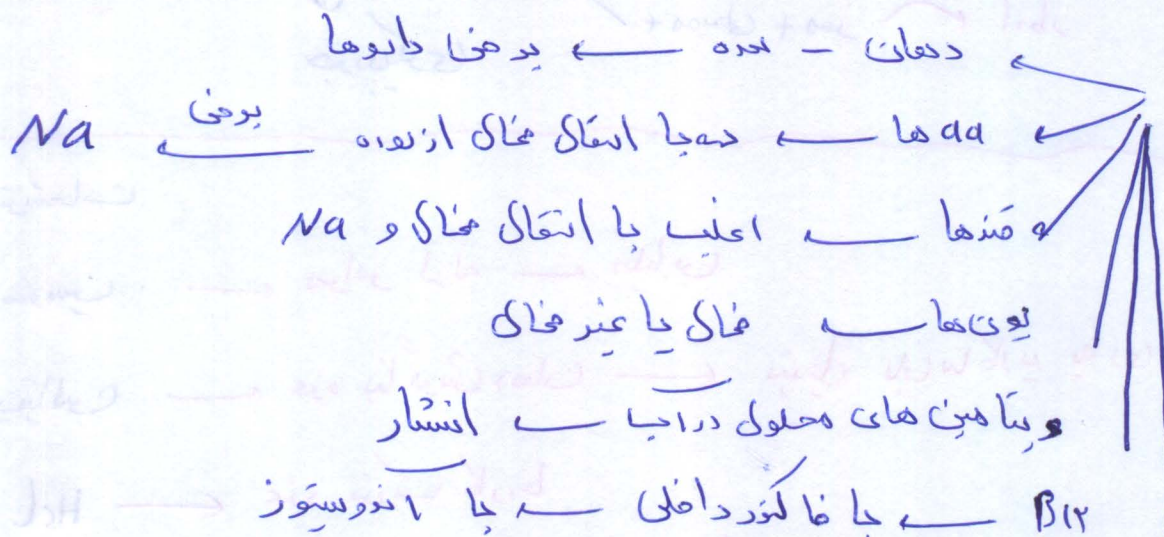 دهان - معده ← برخی داروها
aa ها ← همه با انتقال فعال از روده ← برخی Na
قندها ← اغلب با انتقال فعال و Na
یون‌ها ← فعال یا غیر فعال
ویتامین های محلول در آب ← انتشار
B12 ← با فاکتور داخلی ← با آندوسیتوز